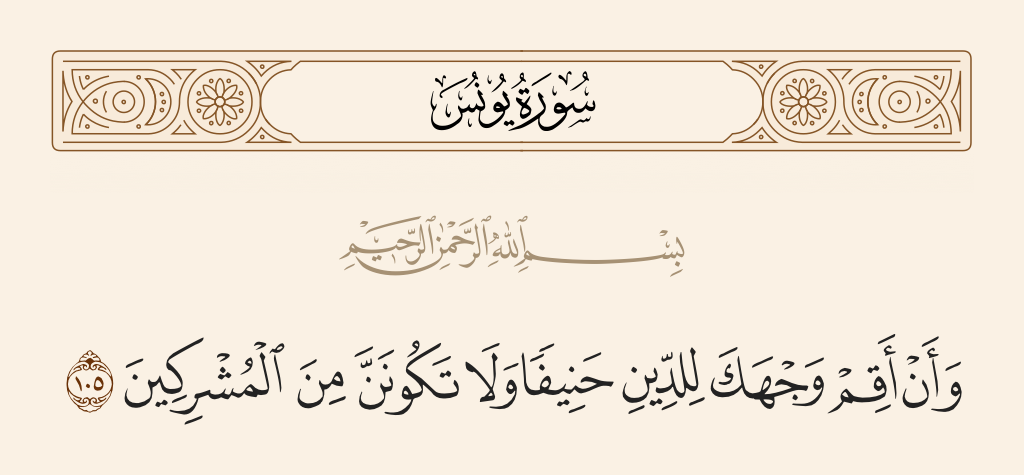 سُورَةُ يُونُسَ
بِسْمِ ٱللَّهِ ٱلرَّحْمَٰنِ ٱلرَّحِيمِ
وَأَنْ أَقِمْ وَجْهَكَ لِلدِّينِ حَنِيفًا وَلَا تَكُونَنَّ مِنَ ٱلْمُشْرِكِينَ ١٠٥